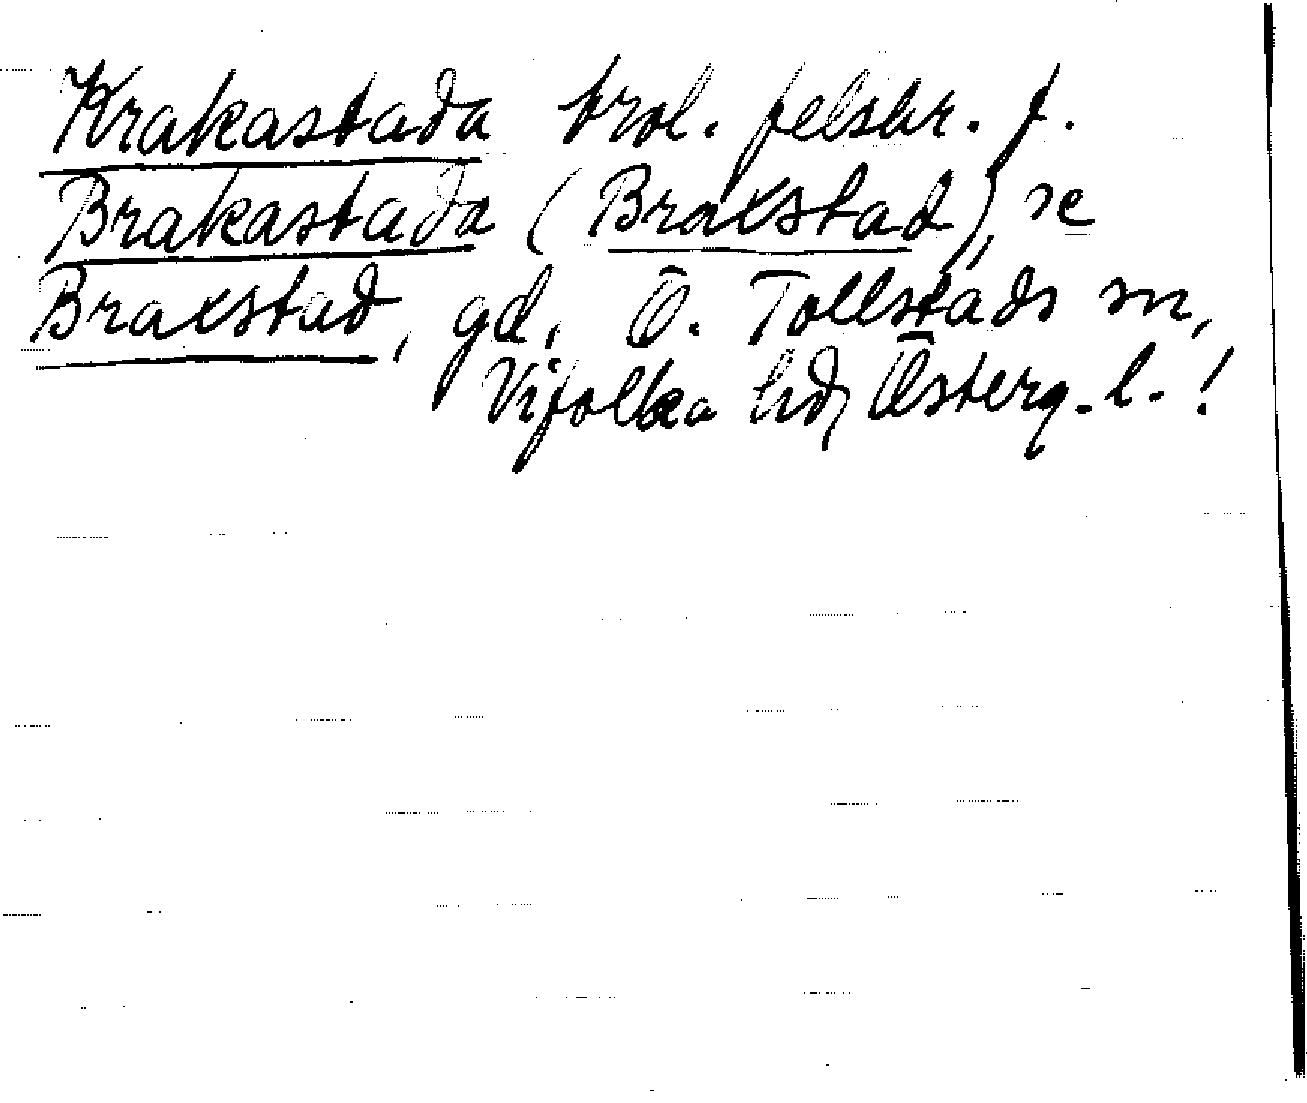 Krakastada trol. felskr. f.
Brakastada (Brakstad), se
Braxstad, gd, Ö. Tollstads sn,
Vifolka hd, Österg. l. !